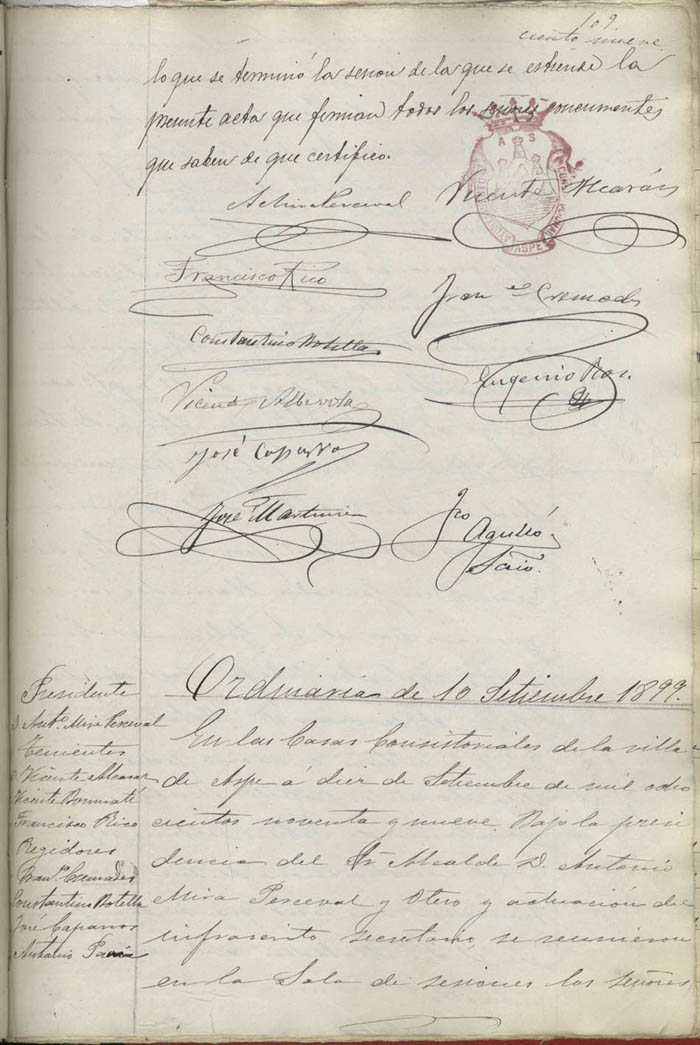 109.
ciento nueve.
lo que se terminó la sesion de la que se estiende la
presente acta que firman todos los señores concurrentes
que saben de que certifico.
A. Mira Perceval
Vicente Alcaráz
A S
ASPE
Francisco Rico
Fran.co Cremades
Constantino Botella
Eugenio
Vicente Alberola
José Caparros
José Martinez
Agulló
Srio.
Ordinaria de 10 Setiembre 1899.
Presidente
D. Ant.o Mira Perceval
Tenientes
D. Vicente Alcaraz
Vicente Bonmatí
Francisco Rico
Regidores
Fran.o Cremades
Constantino Botella
José Caparros
Antonio
En las Casas Consistoriales de la villa
de Aspe á diez de Setiembre de mil ocho
cientos noventa y nueve. Bajo la presi
dencia del Sr Alcalde D. Antonio
Mira Perceval y Otero y actuación del
infrascrito secretario, se reunieron
en la Sala de sesiones los señores